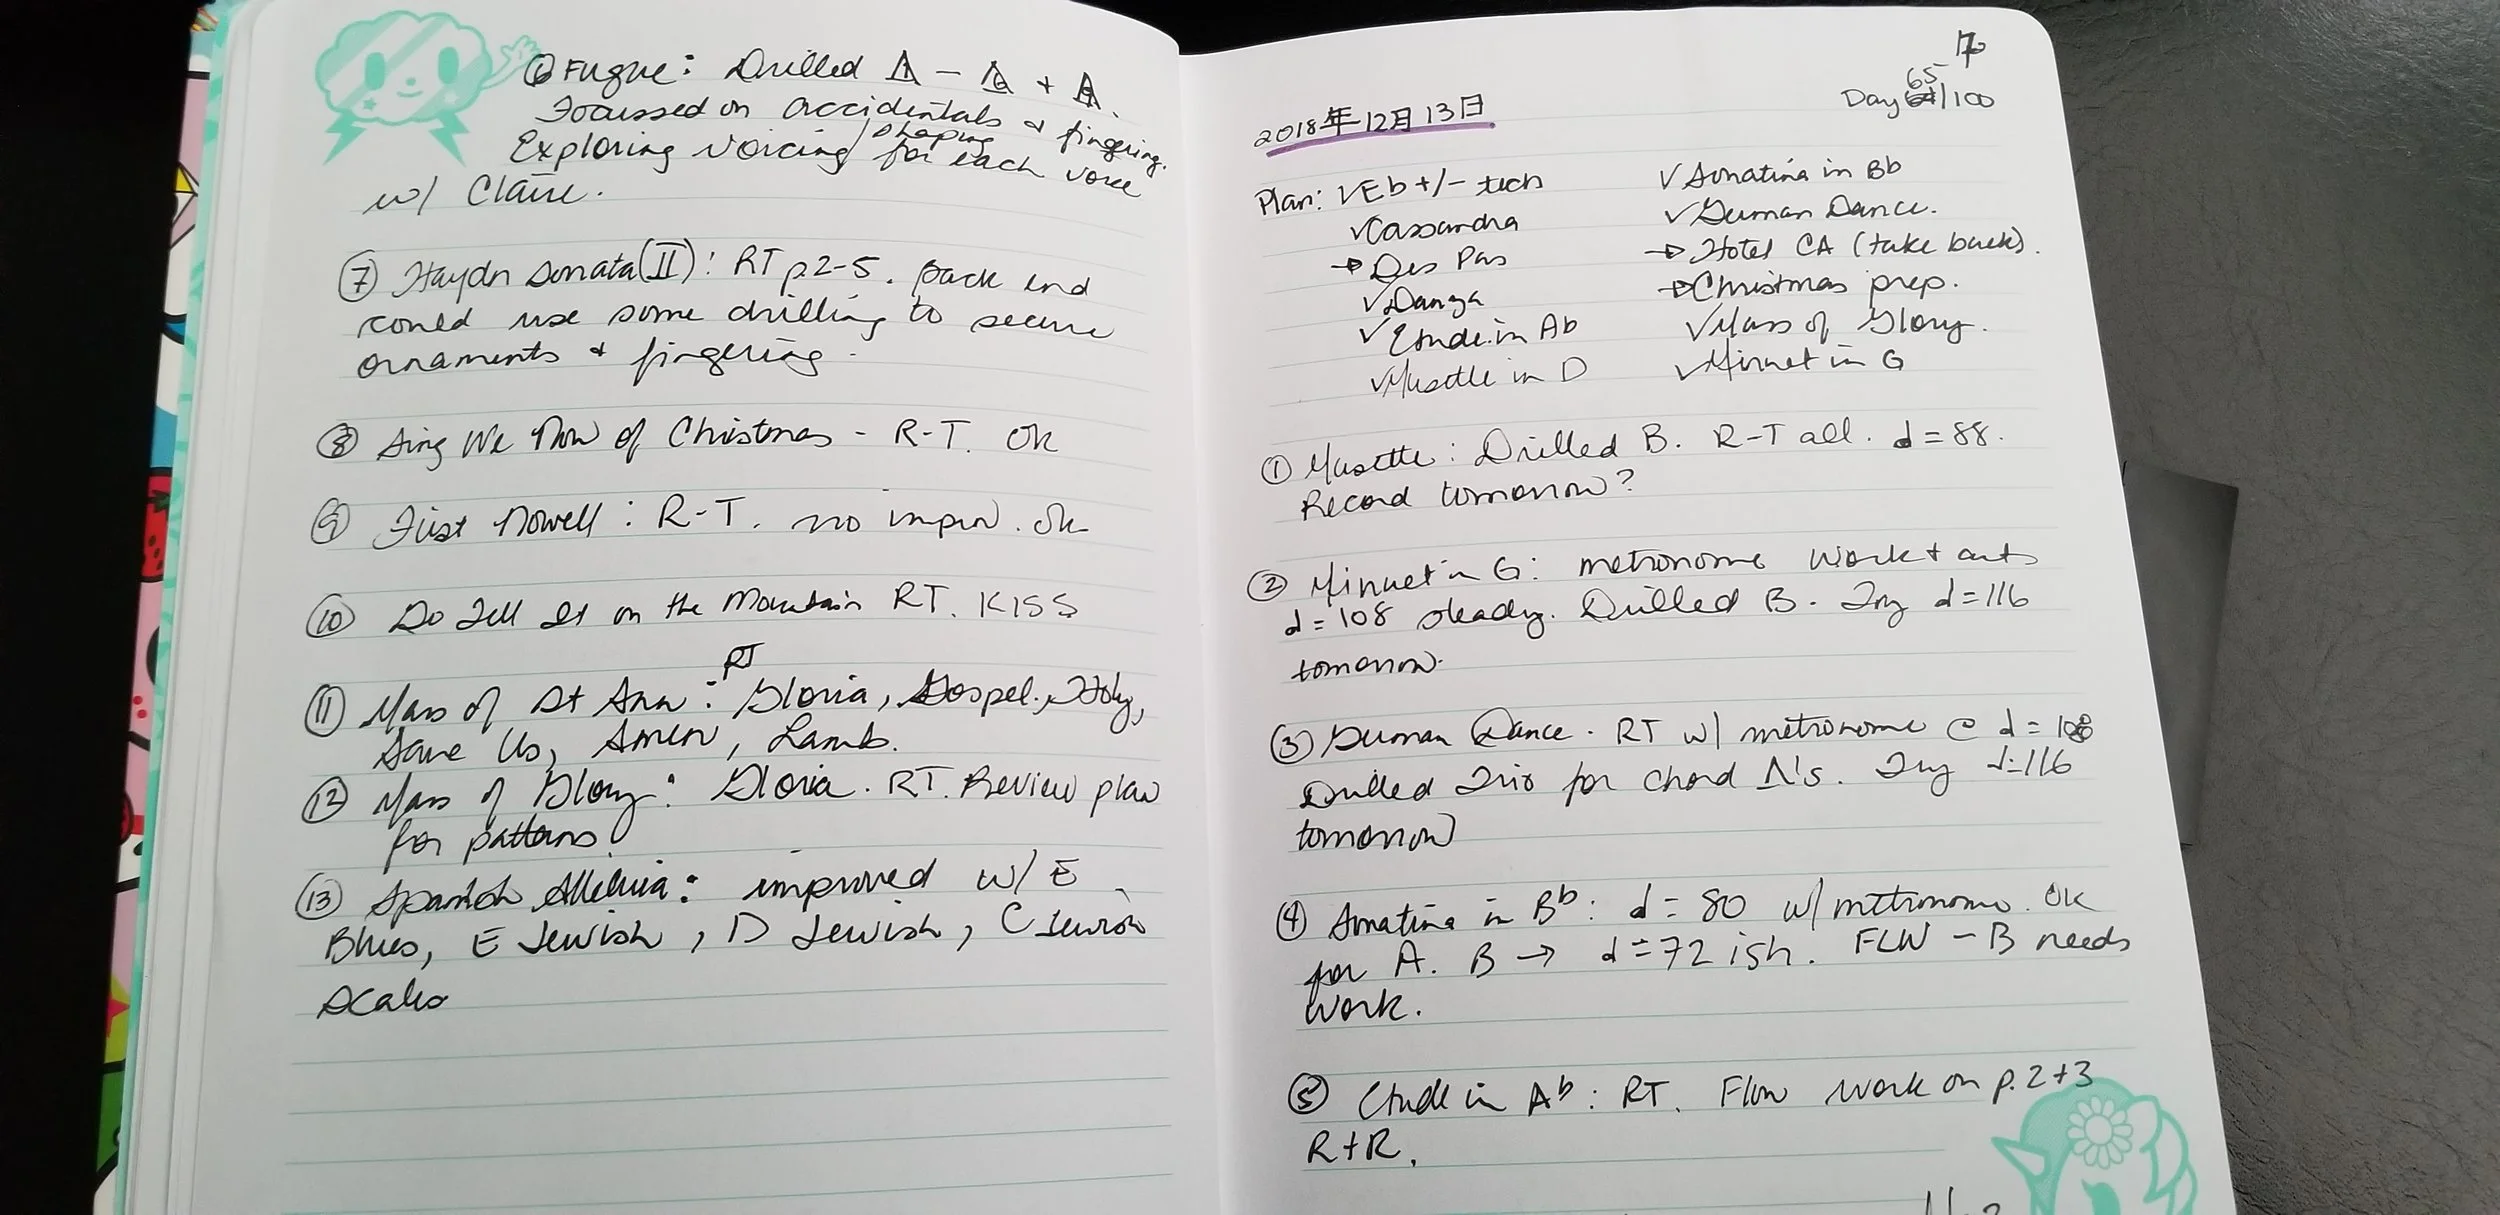 ⑥ Fugue: Drilled
Focussed on accidentals & fingering.
Exploring voicing/shaping for each voice
w/ Claire.
⑦ Haydn Sonata (II): RT p.2-5. Back end
could use some drilling to secure
ornaments & fingering.
⑧ Sing We Now of Christmas - R-T. Ok
⑨ First Nowell: R-T. no improv. Ok
⑩ Go Tell It on the Mountain RT. KISS
RT
⑪ Mass of St Ann: Gloria, Gospel, Holy,
Save Us, Amen, Lamb.
⑫ Mass of Glory: Gloria. RT. Review plan
for patterns
⑬ Spanish Alleluia: improved w/ E
Blues, E Jewish, D Jewish, C Jewish
scales
17
65
Day 64/100
2018年12月13日
Plan: ✓Eb +/- tech
✓Cassandra
→ Des Pas
✓Danza
✓Etude in Ab
✓Musette in D
✓Sonatina in Bb
✓German Dance.
→ Hotel CA (take back).
→Christmas prep.
✓Mass of Glory.
✓Minuet in G
① Musette: Drilled B. R-T all. d=88.
Record tomorrow?
② Minuet in G: metronome work + art
d=108 steady. Drilled B. Try d=116
tomorrow.
③ German Dance. RT w/ metronome @ d=108
Drilled Trio for chord Δ's. Try d=116
tomorrow
④ Sonatina in Bb: d=80 w/ metronome. Ok
for A. B → d=72 ish. FLW - B needs
work.
⑤ Etude in Ab: RT. Flow work on p.2+3
R+R.